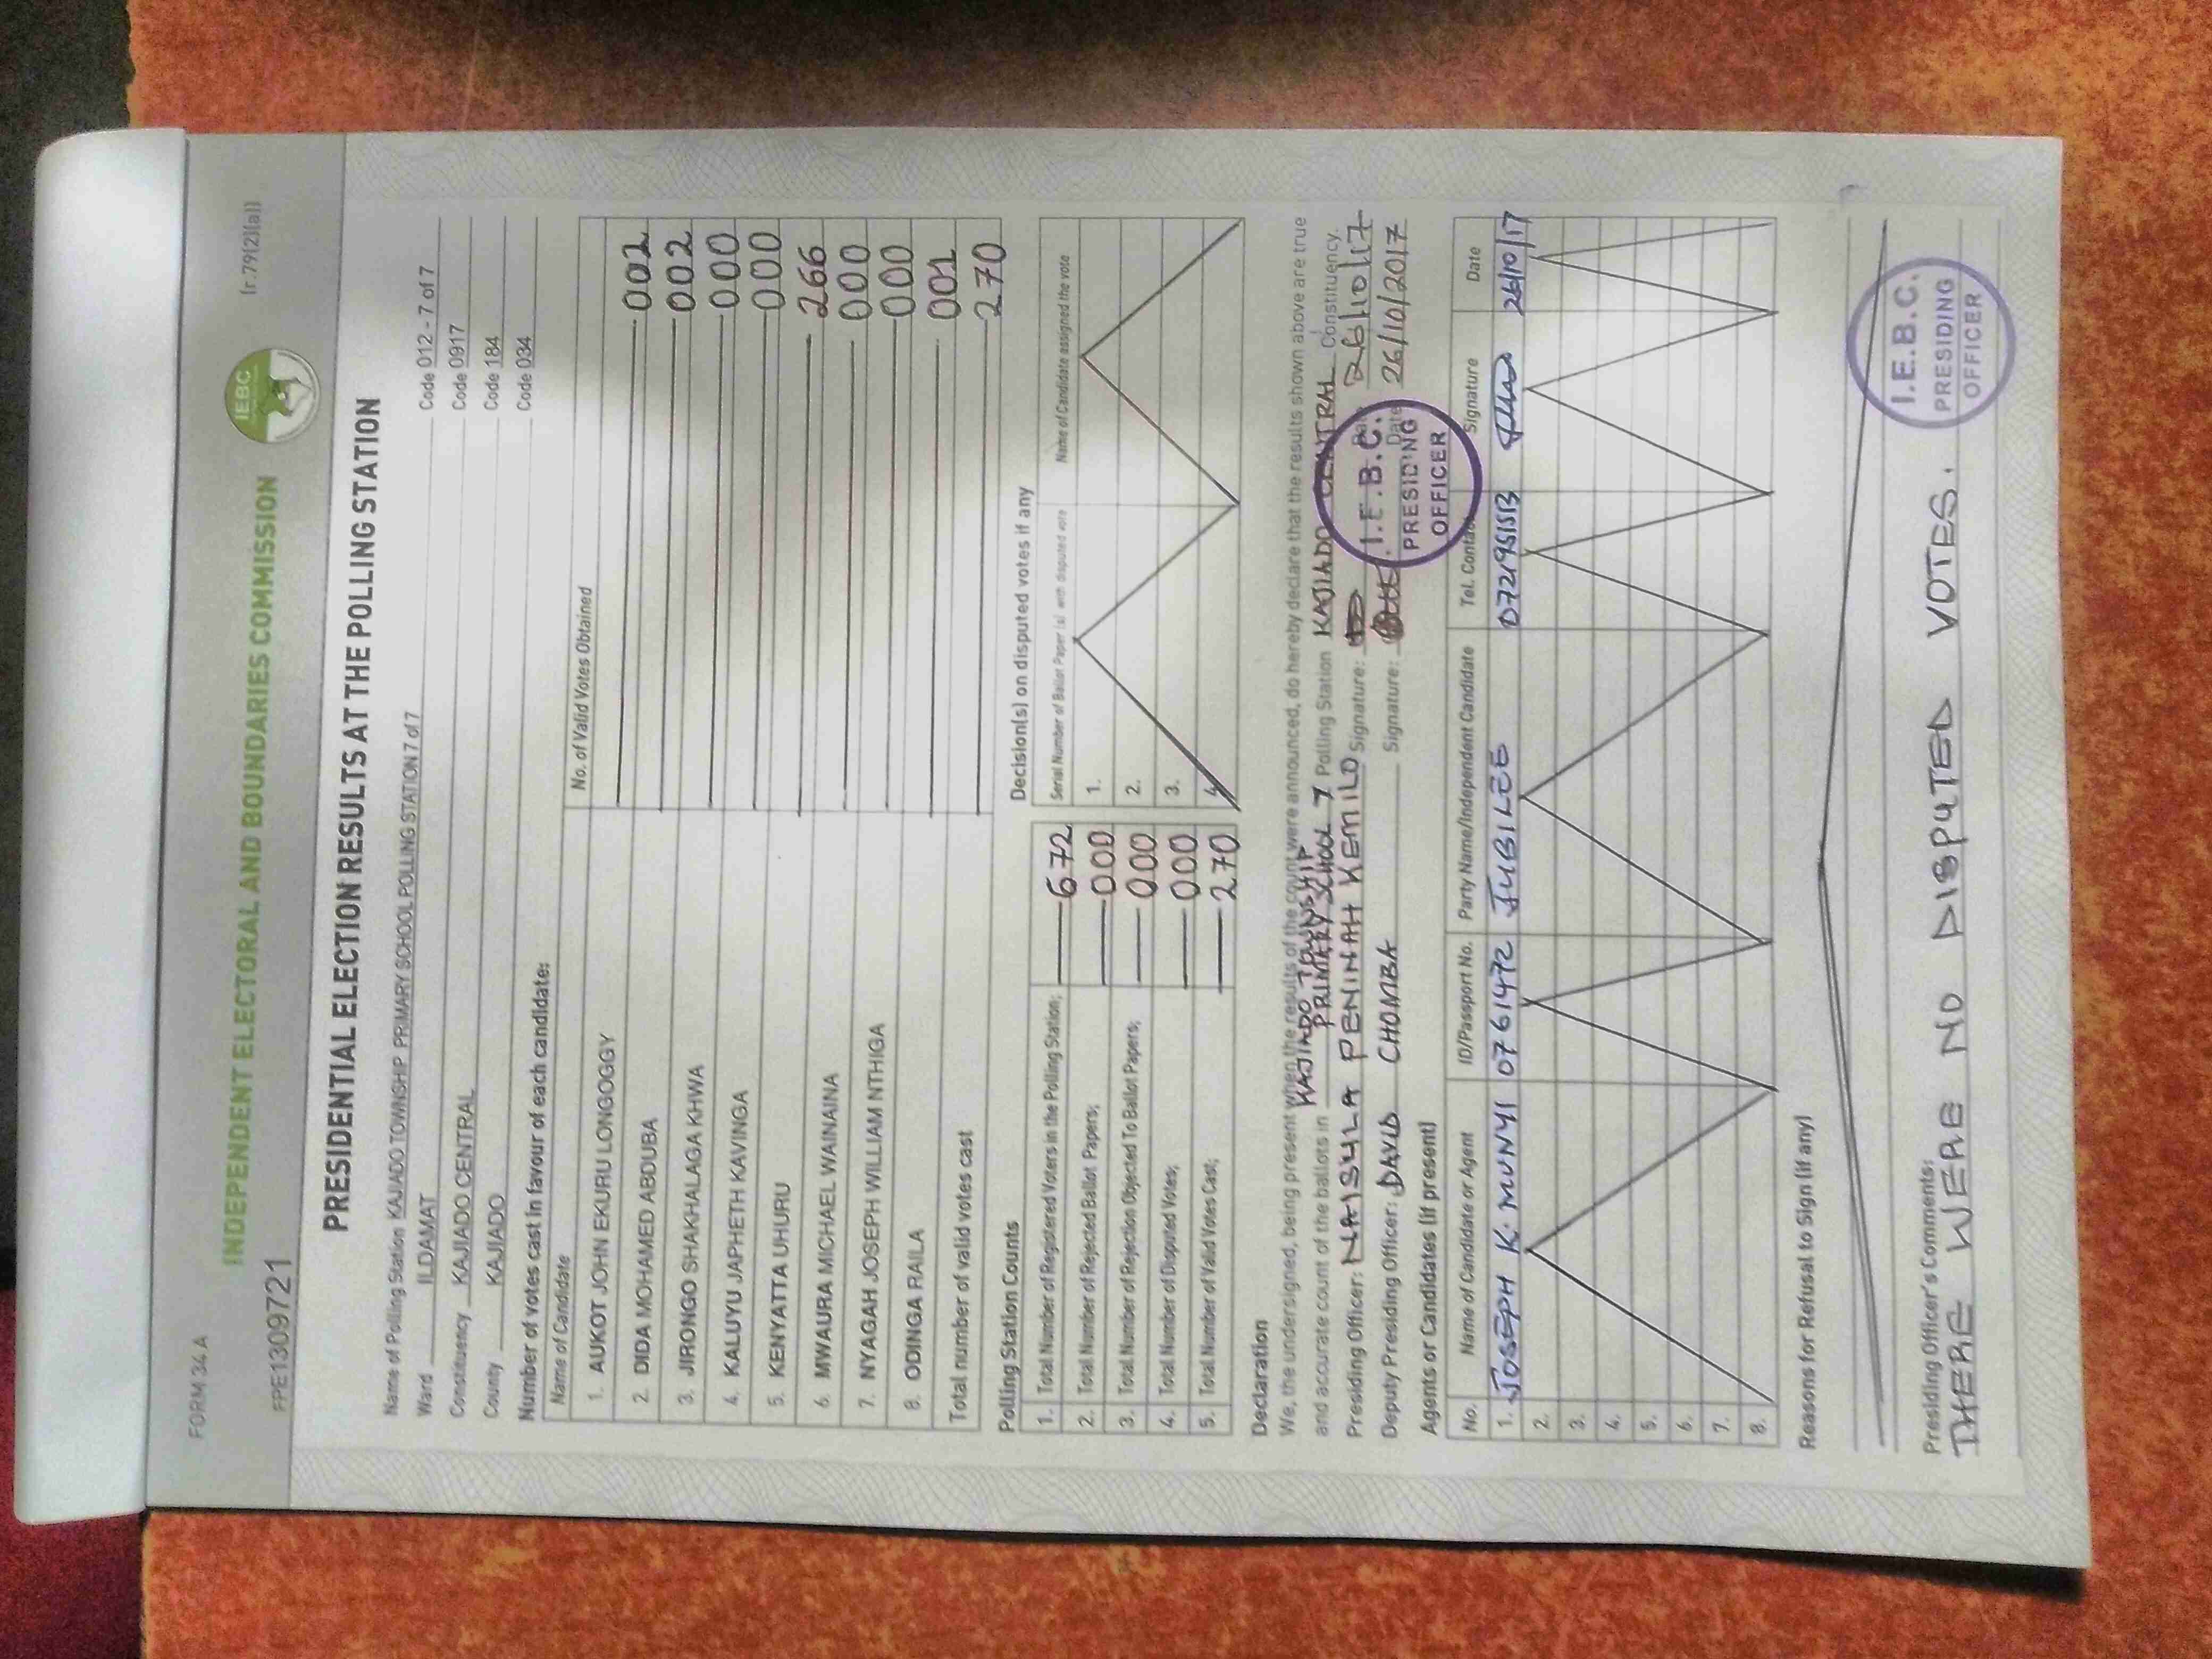 FORM 34 A
(r.79(2)(a))
FPE1309721
IEBC
INDEPENDENT ELECTORAL AND BOUNDARIES COMMISSION
PRESIDENTIAL ELECTION RESULTS AT THE POLLING STATION
Name of Polling Station KAJIADO TOWNSHIP PRIMARY SCHOOL POLLING STATION 7 of 7 Code 012 - 7 of 7
Ward ILDAMAT Code 0917
Constituency KAJIADO CENTRAL Code 184
County KAJIADO Code 034
Number of votes cast in favour of each candidate:
Name of Candidate No. of Valid Votes Obtained
1. AUKOT JOHN EKURU LONGOGGY 002
2. DIDA MOHAMED ABDUBA 002
3. JIRONGO SHAKHALAGA KHWA 000
4. KALUYU JAPHETH KAVINGA 000
5. KENYATTA UHURU 266
6. MWAURA MICHAEL WAINAINA 000
7. NYAGAH JOSEPH WILLIAM NTHIGA 000
8. ODINGA RAILA 001
Total number of valid votes cast 270
Polling Station Counts
1. Total Number of Registered Voters in the Polling Station; 672
2. Total Number of Rejected Ballot Papers; 000
3. Total Number of Rejection Objected To Ballot Papers; 000
4. Total Number of Disputed Votes; 000
5. Total Number of Valid Votes Cast; 270
Decision(s) on disputed votes if any
Serial Number of Ballot Paper (s) with disputed vote Name of Candidate assigned the vote
1.
2.
3.
4.
Declaration
We, the undersigned, being present when the results of the count were announced, do hereby declare that the results shown above are true
and accurate count of the ballots in KAJIADO TOWNSHIP PRIMARY SCHOOL 7 Polling Station KAJIADO CENTRAL Constituency.
Presiding Officer: NAISULA PENINAH KEMILO Signature: Date 26/10/17
Deputy Presiding Officer: DAVID CHOMBA Signature: Date 26/10/2017
I.E.B.C.
PRESIDING
OFFICER
Agents or Candidates (if present)
No. Name of Candidate or Agent ID/Passport No. Party Name/Independent Candidate Tel. Contact Signature Date
1. JOSEPH K. MUNYI 0761472 JUBILEE 0721951513 26/10/17
2.
3.
4.
5.
6.
7.
8.
Reasons for Refusal to Sign (if any)
Presiding Officer's Comments:
THERE WERE NO DISPUTED VOTES.
I.E.B.C.
PRESIDING
OFFICER